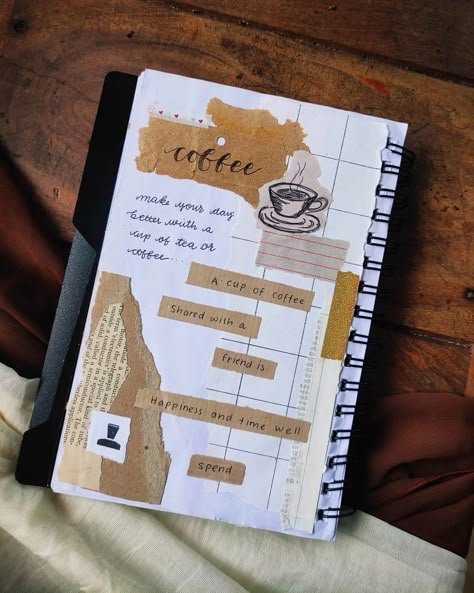 coffee
make your day
better with a
cup of tea or
coffee...
A cup of coffee
Shared with a
friend is
Happiness and time well
spend